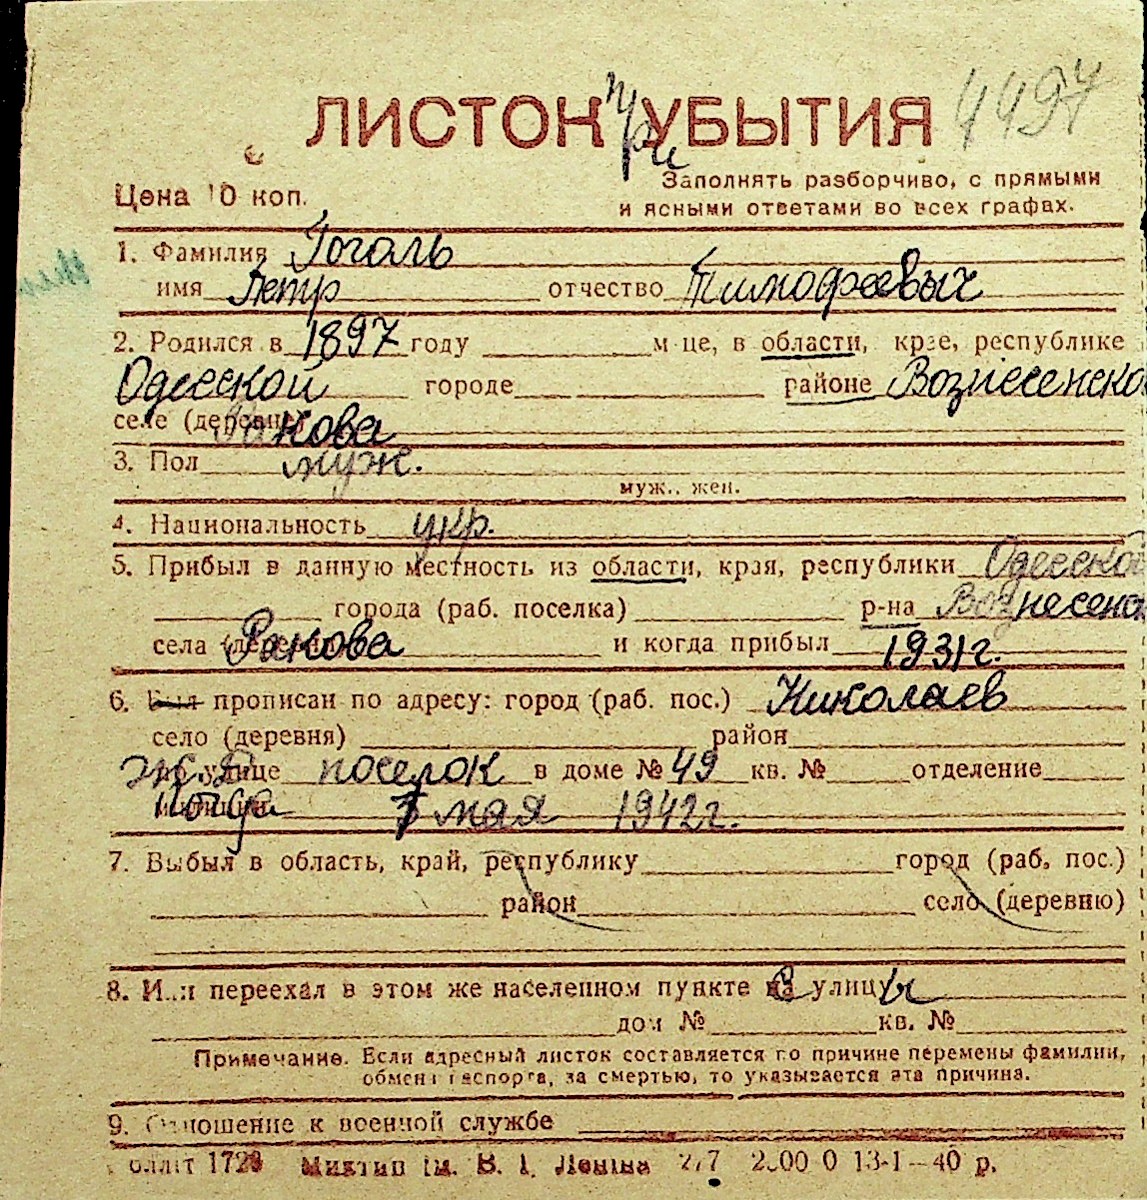 ЛИСТОК УБЫТИЯ 4497
при
Цена 10 коп.
Заполнять разборчиво, с прямыми
и ясными ответами во всех графах.
1. Фамилия Гоголь
имя Петр отчество Тимофеевич
2. Родился в 1897 году м-це, в области, крае, республике
Одесской городе районе Вознесенско
селе (деревне) Ракова
3. Пол муж.
муж., жен.
4. Национальность укр.
5. Прибыл в данную местность из области, края, республики Одесской
города (раб. поселка) р-на Вознесенс
села (деревни) Ракова и когда прибыл 1931 г.
6. Был прописан по адресу: город (раб. пос.) Николаев
село (деревня) район
по улице поселок в доме № 49 кв. № отделение
милиции когда 7 мая 1942 г.
7. Выбыл в область, край, республику город (раб. пос.)
район село (деревню)
8. Или переехал в этом же населенном пункте на улицу
дом № кв. №
Примечание. Если адресный листок составляется по причине перемены фамилии,
обмена паспорта, за смертью, то указывается эта причина.
9. Отношение к военной службе
1728 Миктип ім. В. І. Леніна 13-1—40 р.